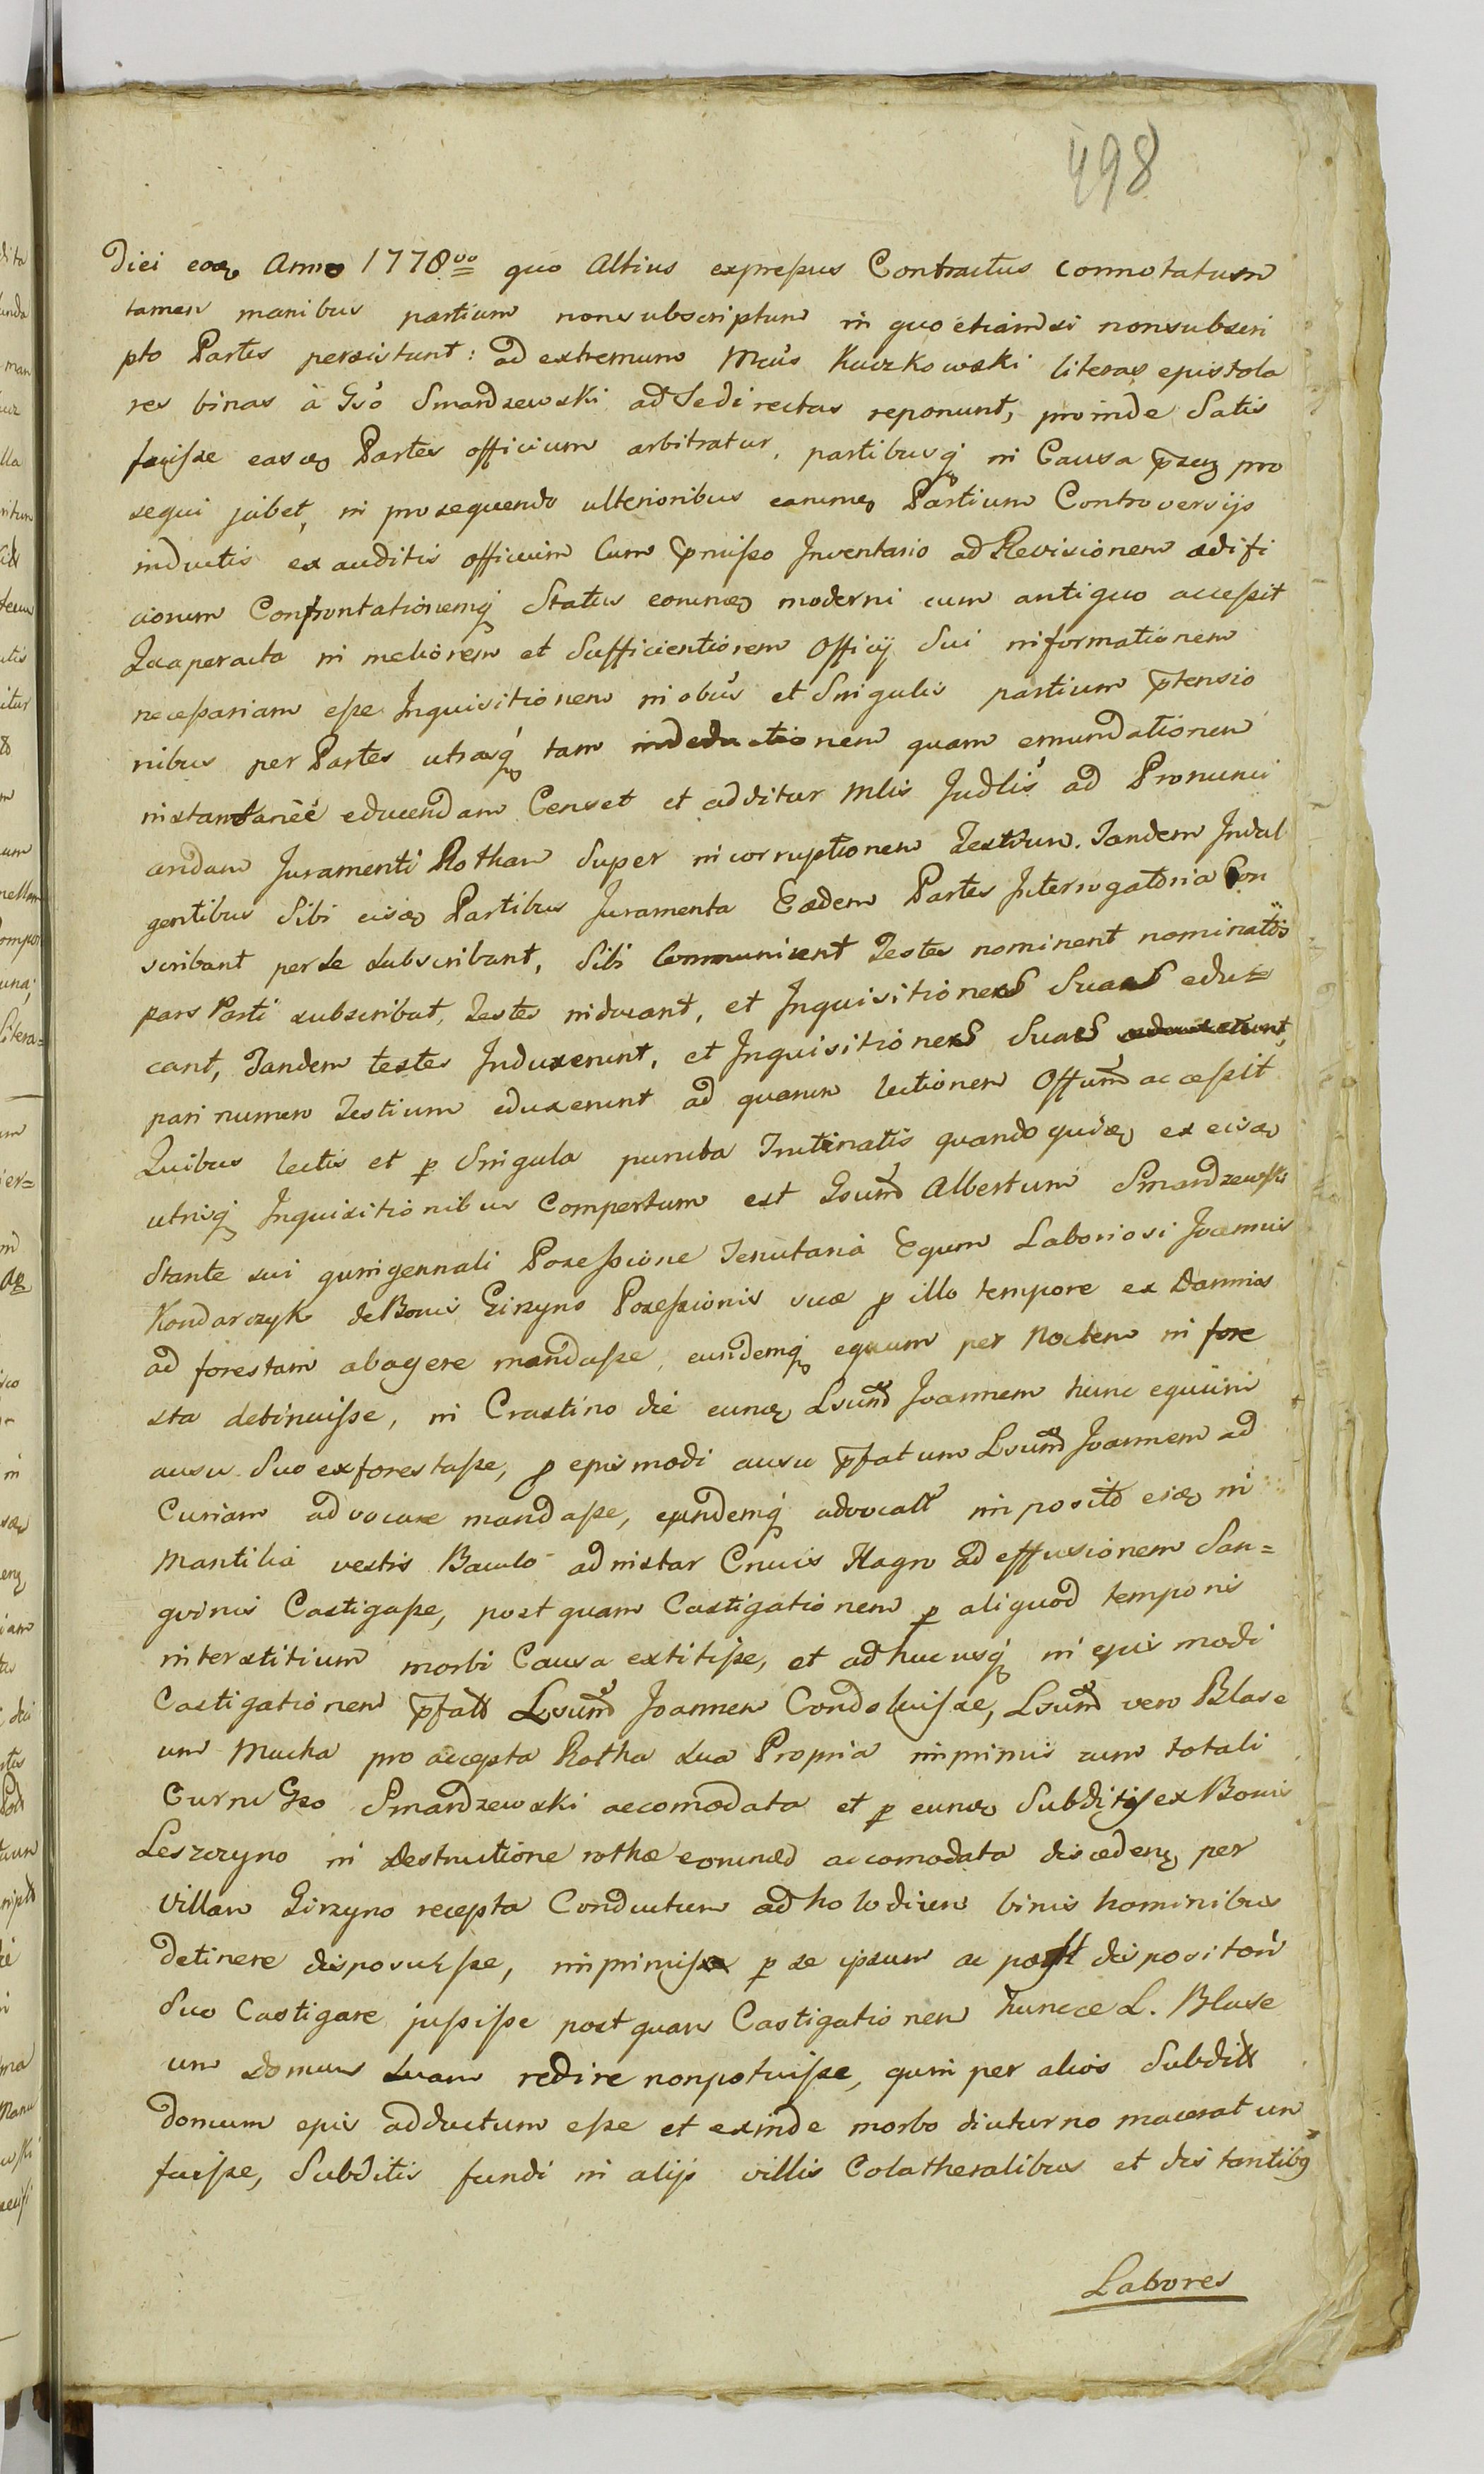 498
Diei eoq Anno 1778vo quo Altius expressus Contractus connotatum
tamen manibus partium nonsubscriptum in quo etiamsi nonsubscri
pto Partes persistunt: ad extremum Mcus Kuczkowski literas epistola
res binas à Gso Smardzewski ad Se directas reponunt, proinde Satis
fecisse easq Partes officium arbitratur, partibusq in Causa prnq pro
sequi jubet, in prosequendo ulterioribus earumq Partium Controversijs
inductis exauditis officium Cum pmisso Inventario ad Revisionem aedifi
ciorum Confrontationemq Status eorumq moderni cum antiquo accessit
Qua peracta in meliorem et Sufficientiorem Officij Sui informationem
necessariam esse Inquisitionem in obus et Singulis partium ptensio
nibus per Partes utrasq tam indeductionem quam emundationem
instantaneè educendam Censet et additur Mlis Judlis ad Pronunci
andam Juramenti Rotham Super incorruptionem Testium. Tandem Indul
gentibus Sibi eisq Partibus Juramenta Eaedem Partes Interrogatoria Con
scribant per se subscribant, Sibi Communicent Testes nominent nominatos
pars Parti subscribat, Testes inducant, et Inquisitiones Suas edu=
cant, Tandem testes Induxerunt, et Inquisitiones Suas
pari numero Testium eduxerunt ad quarum lectionem Offum accessit
Quibus lectis et p Singula puncta Trutinatis quandoquidq ex eisq
utrisq Inquisitionibus Compertum est Gsum Albertum Smardzewski
Stante sui quingennali Possessione Tenutaria Equm Laboriosi Joannis
Kondarczyk de Bonis Girzyno Possessionis suae p illo tempore ex Damnis
ad forestam abagere mandasse, eundemq equum per Noctem in fore
sta detinuisse, in Crastino die eunq Lsum Joannem hunc equum
ausu Suo exforestasse, p ejusmodi ausu pfatum Lsum Joannem ad
Curiam advocare mandasse, eundemq advocatt imposito eidq in
Mantilia vestis Baculo ad instar Crucis Flagro ad effusionem San=
gvinis Castigasse, post quam Castigationem p aliquod temporis
interstitium morbi Causa extitisse, et adhucusq in ejus modi
Castigationem pfatt Lsum Joannem Condoluisse, Lsum vero Blasi
um Mucha pro accepta Rotha sua Propria imprimis cum totali
Curru Gso Smardzewski accomodata et p eunq Subditis ex Bonis
Leszczyno in destructione rothae eorumd accomodata discedenq per
Villam Girzyno recepta Conductum ad holodium binis hominibus
detinere disposuisse, imprimis p se ipsum ac post dispositori
Suo Castigare jussisse post quam Castigationem huncce L. Blase
um domum suam redire nonpotuisse, quin per alios Subditt
domum ejus adductum esse et exinde morbo diuturno maceratum
fuisse, Subditis fundi in alijs villis Colatheralibus et distantibq
Labores